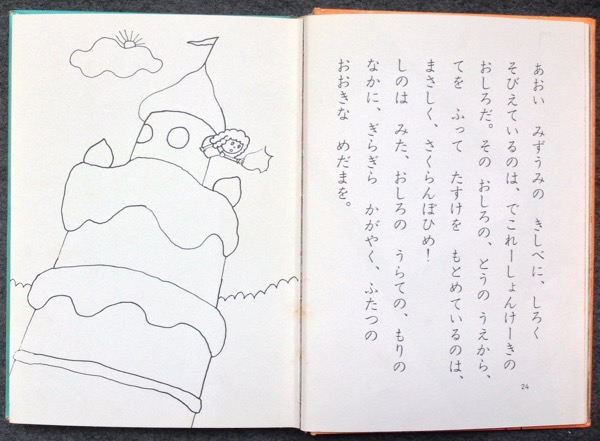 あおい　みずうみの　きしべに、しろく
そびえているのは、でこれーしょんけーきの
おしろだ。その　おしろの、とうの　うえから、
てを　ふって　たすけを　もとめているのは、
まさしく、さくらんぼひめ！
しのは　みた、おしろの　うらての、もりの
なかに、ぎらぎら　かがやく、ふたつの
おおきな　めだまを。
24